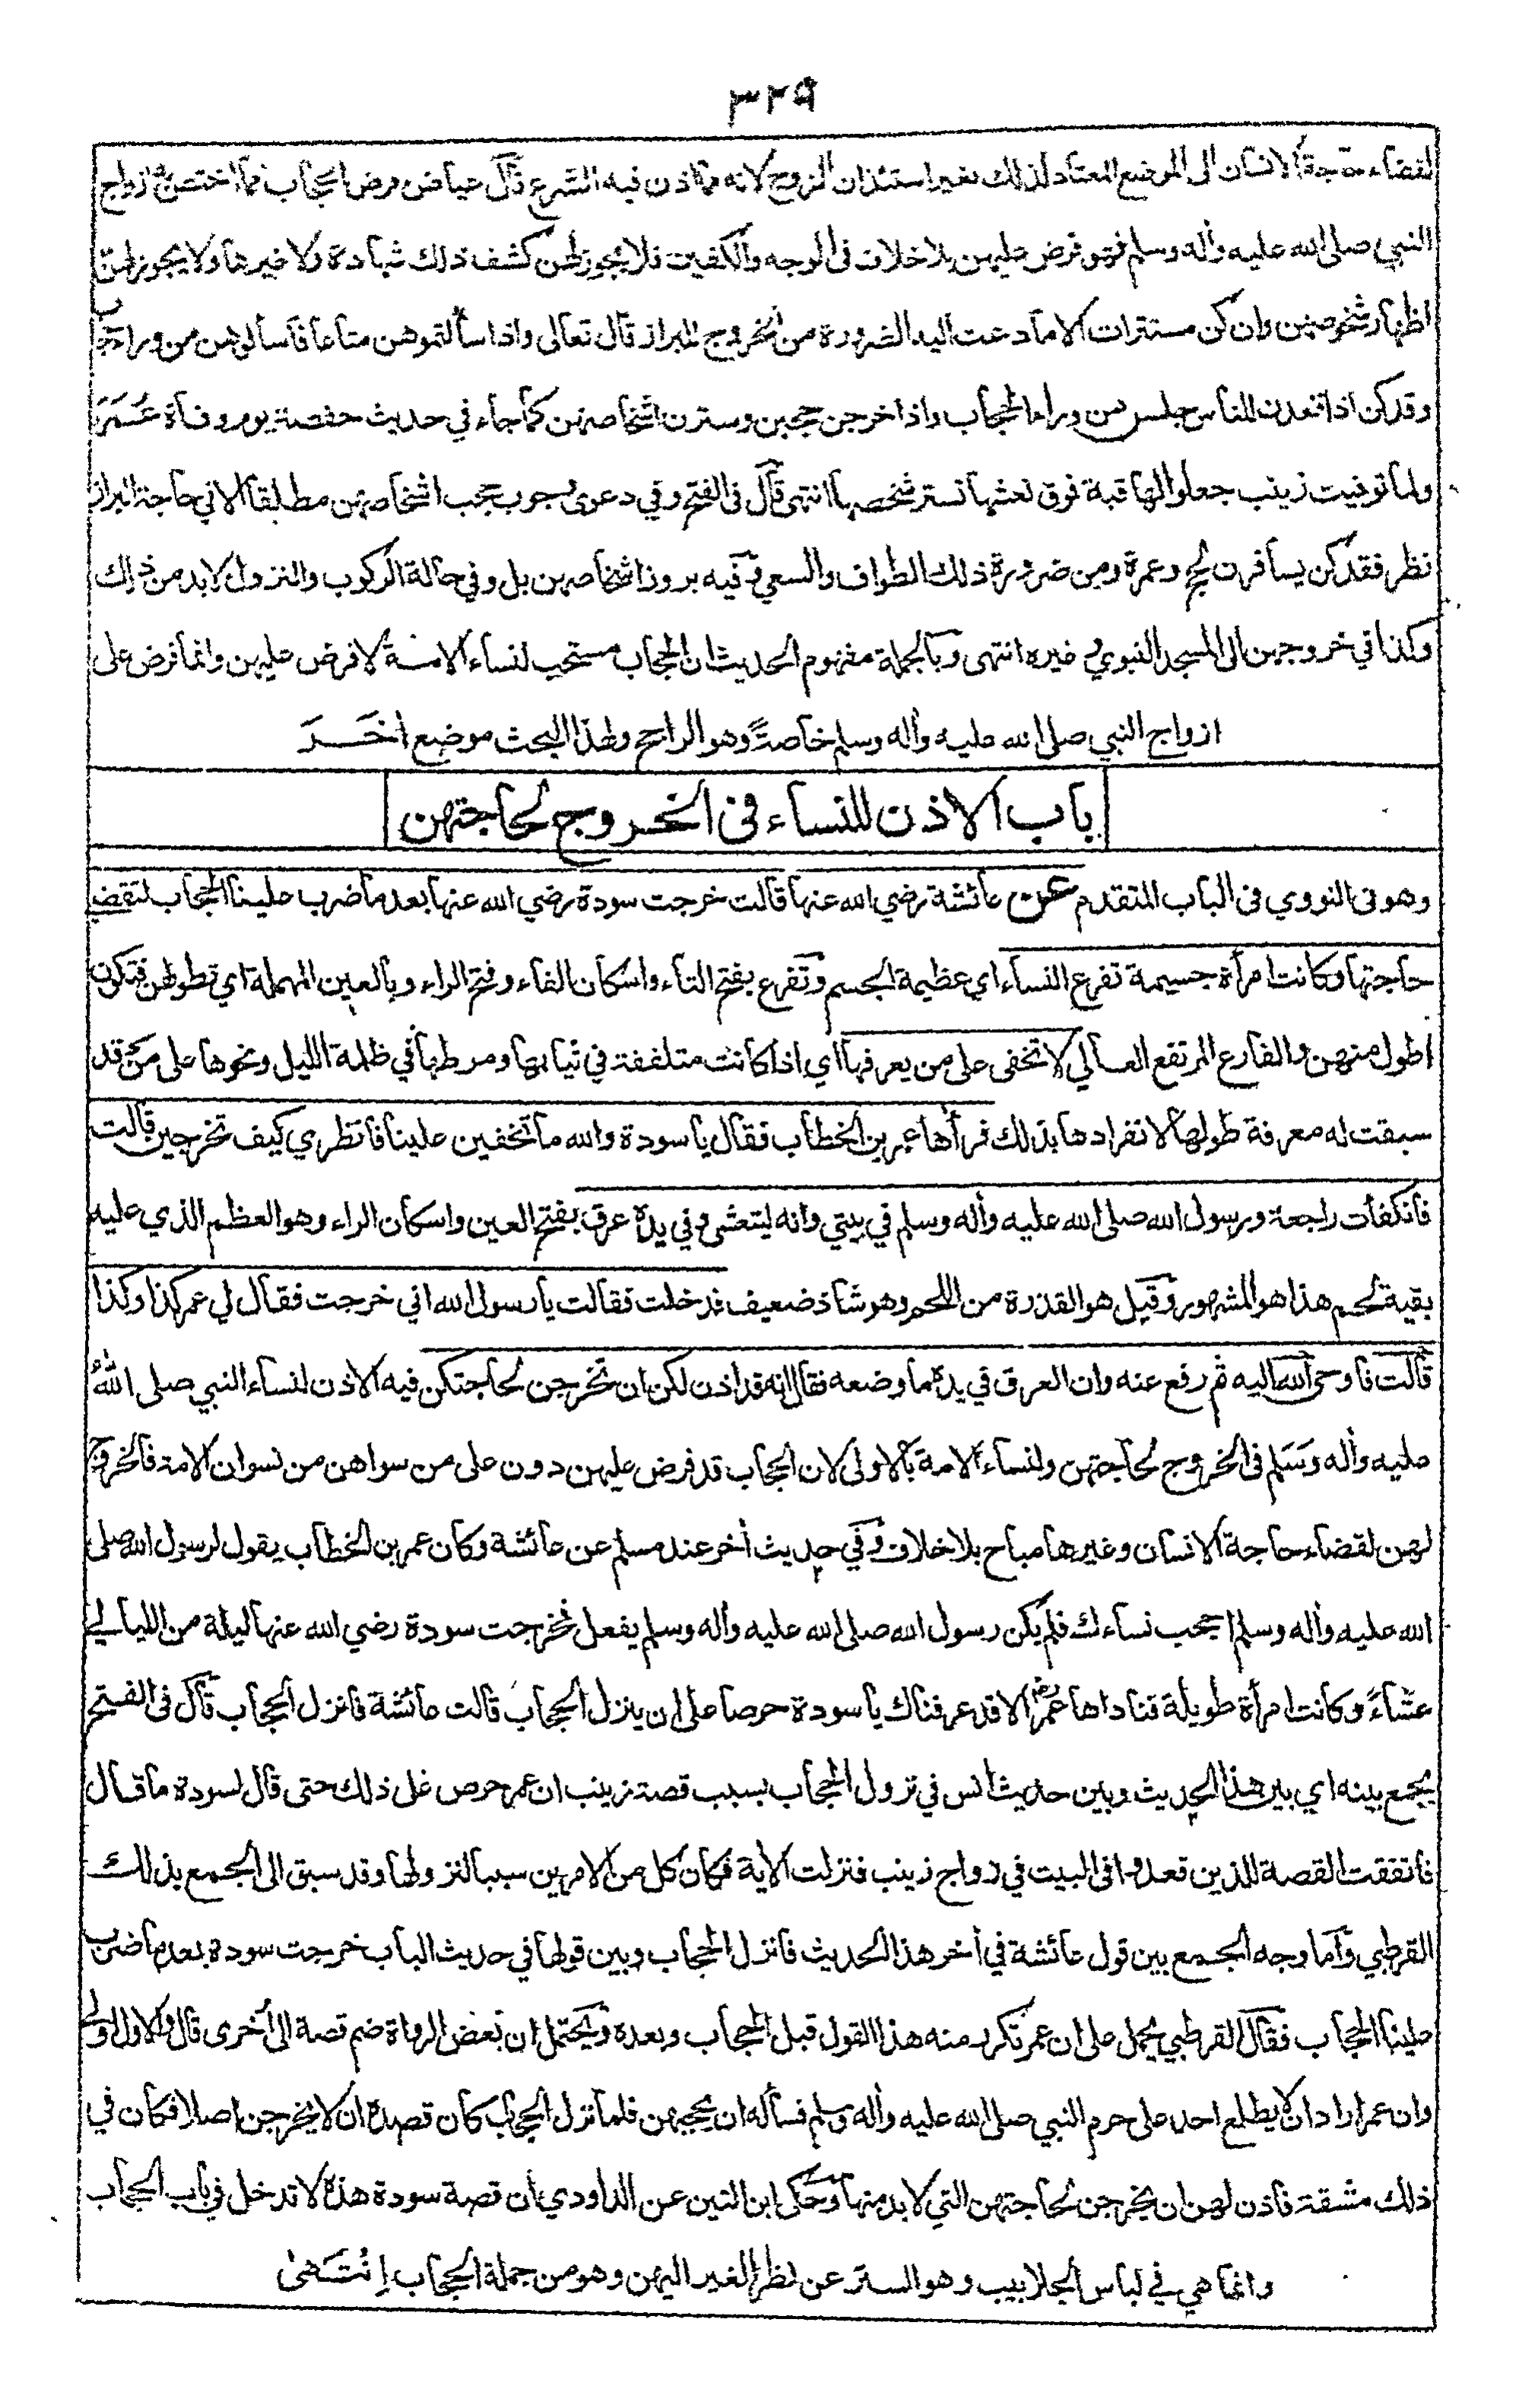 ٣٢٩
لقضاء حاجة الانسان الى الموضع المعتاد لذلك بغير استئذان الزوج لانه مما اذن فيه الشرع قال عياض فرض الحجاب مما اختص به ازواج
النبي صلى الله عليه وأله وسلم فهو فرض عليهن بلا خلاف فى الوجه والكفين فلا يجوز لهن كشف ذلك لشهادة ولا غيرها ولا يجوز لهن
اظهار شخوصهن وان كن مستترات الا ما دعت اليه الضرورة من الخروج للبراز قال تعالى واذا سألتموهن متاعا فاسألوهن من وراء حجاب
وقد كن اذا قعدن للناس جلسن من وراء الحجاب واذا خرجن حجبن وسترن اشخاصهن كما جاء في حديث حفصة يوم وفاة عمر
ولما توفيت زينب جعلوا لها قبة فوق نعشها تستر شخصها انتهى قال فى الفتح وفي دعوى وجوب حجب اشخاصهن مطلقا الا في حاجة البراز
نظر فقد كن يسافرن لحج وعمرة ومن ضرورة ذلك الطواف والسعي وفيه بروز اشخاصهن بل وفي حالة الركوب والنزول لابد من ذلك
وكذا في خروجهن الى المسجد النبوي وغيره انتهى وبالجملة مفهوم الحديث ان الحجاب مستحب لنساء الامة لا فرض عليهن وانما فرض على
ازواج النبي صلى الله عليه وأله وسلم خاصة وهو الراجح ولهذا البحث موضع اخر
باب الاذن للنساء فى الخروج لحاجتهن
وهو فى النووي فى الباب المتقدم عن عائشة رضي الله عنها قالت خرجت سودة رضي الله عنها بعد ما ضرب علينا الحجاب لتقضي
حاجتها وكانت امرأة جسيمة تفرع النساء اي عظيمة الجسم وتفرع بفتح التاء واسكان الفاء وفتح الراء وبالعين المهملة اي تطولهن فتكون
اطول منهن والفارع المرتفع العالي لا تخفى على من يعرفها اي اذا كانت متلففة في ثيابها ومرطها في ظلمة الليل ونحوها على من قد
سبقت له معرفة طولها لانفرادها بذلك فرأها عمر بن الخطاب فقال يا سودة والله ما تخفين علينا فانظري كيف تخرجين قالت
فانكفأت راجعة ورسول الله صلى الله عليه وأله وسلم في بيتي وانه ليتعشى وفي يده عرق بفتح العين واسكان الراء وهو العظم الذي عليه
بقية لحم هذا هو المشهور وقيل هو القذرة من اللحم وهو شاذ ضعيف فدخلت فقالت يا رسول الله اني خرجت فقال لي عمر كذا وكذا
قالت فاوحى الله اليه ثم رفع عنه وان العرق في يده ما وضعه فقال انه قد اذن لكن ان تخرجن لحاجتكن فيه الاذن لنساء النبي صلى الله
عليه وأله وسلم فى الخروج لحاجتهن ولنساء الامة بالاولى لان الحجاب قد فرض عليهن دون على من سواهن من نسوان الامة فالخروج
لهن لقضاء حاجة الانسان وغيرها مباح بلا خلاف وفي حديث أخر عند مسلم عن عائشة وكان عمر بن الخطاب يقول لرسول الله صلى
الله عليه وأله وسلم احجب نساءك فلم يكن رسول الله صلى الله عليه وأله وسلم يفعل فخرجت سودة رضي الله عنها ليلة من الليالي
عشاءً وكانت امرأة طويلة فناداها عمر الا قد عرفناك يا سودة حرصا على ان ينزل الحجاب قالت عائشة فانزل الحجاب قال فى الفتح
يجمع بينه اي بين هذا الحديث وبين حديث انس في نزول الحجاب بسبب قصة زينب ان عمر حرص على ذلك حتى قال لسودة ما قال
فاتفقت القصة للذين قعدوا فى البيت في زواج زينب فنزلت الأية فكان كل من الامرين سببا لنزولها وقد سبق الى الجمع بذلك
القرطبي وأما وجه الجمع بين قول عائشة في أخر هذا الحديث فانزل الحجاب وبين قولها في حديث الباب خرجت سودة بعد ما ضرب
علينا الحجاب فقال القرطبي يحمل على ان عمر تكرر منه هذا القول قبل الحجاب وبعده ويحتمل ان بعض الرواة ضم قصة الى أخرى قال والاول اولى
وان عمر اراد ان لا يطلع احد على حرم النبي صلى الله عليه وأله وسلم فسأله ان يحجبهن فلما نزل الحجاب كان قصده ان لا يخرجن اصلا فكان في
ذلك مشقة فاذن لهن ان يخرجن لحاجتهن التي لابد منها وحكى ابن التين عن الداودي أن قصة سودة هذه لا تدخل في باب الحجاب
وانما هي في لباس الجلابيب وهو الستر عن نظر الغير اليهن وهو من جملة الحجاب انتهى